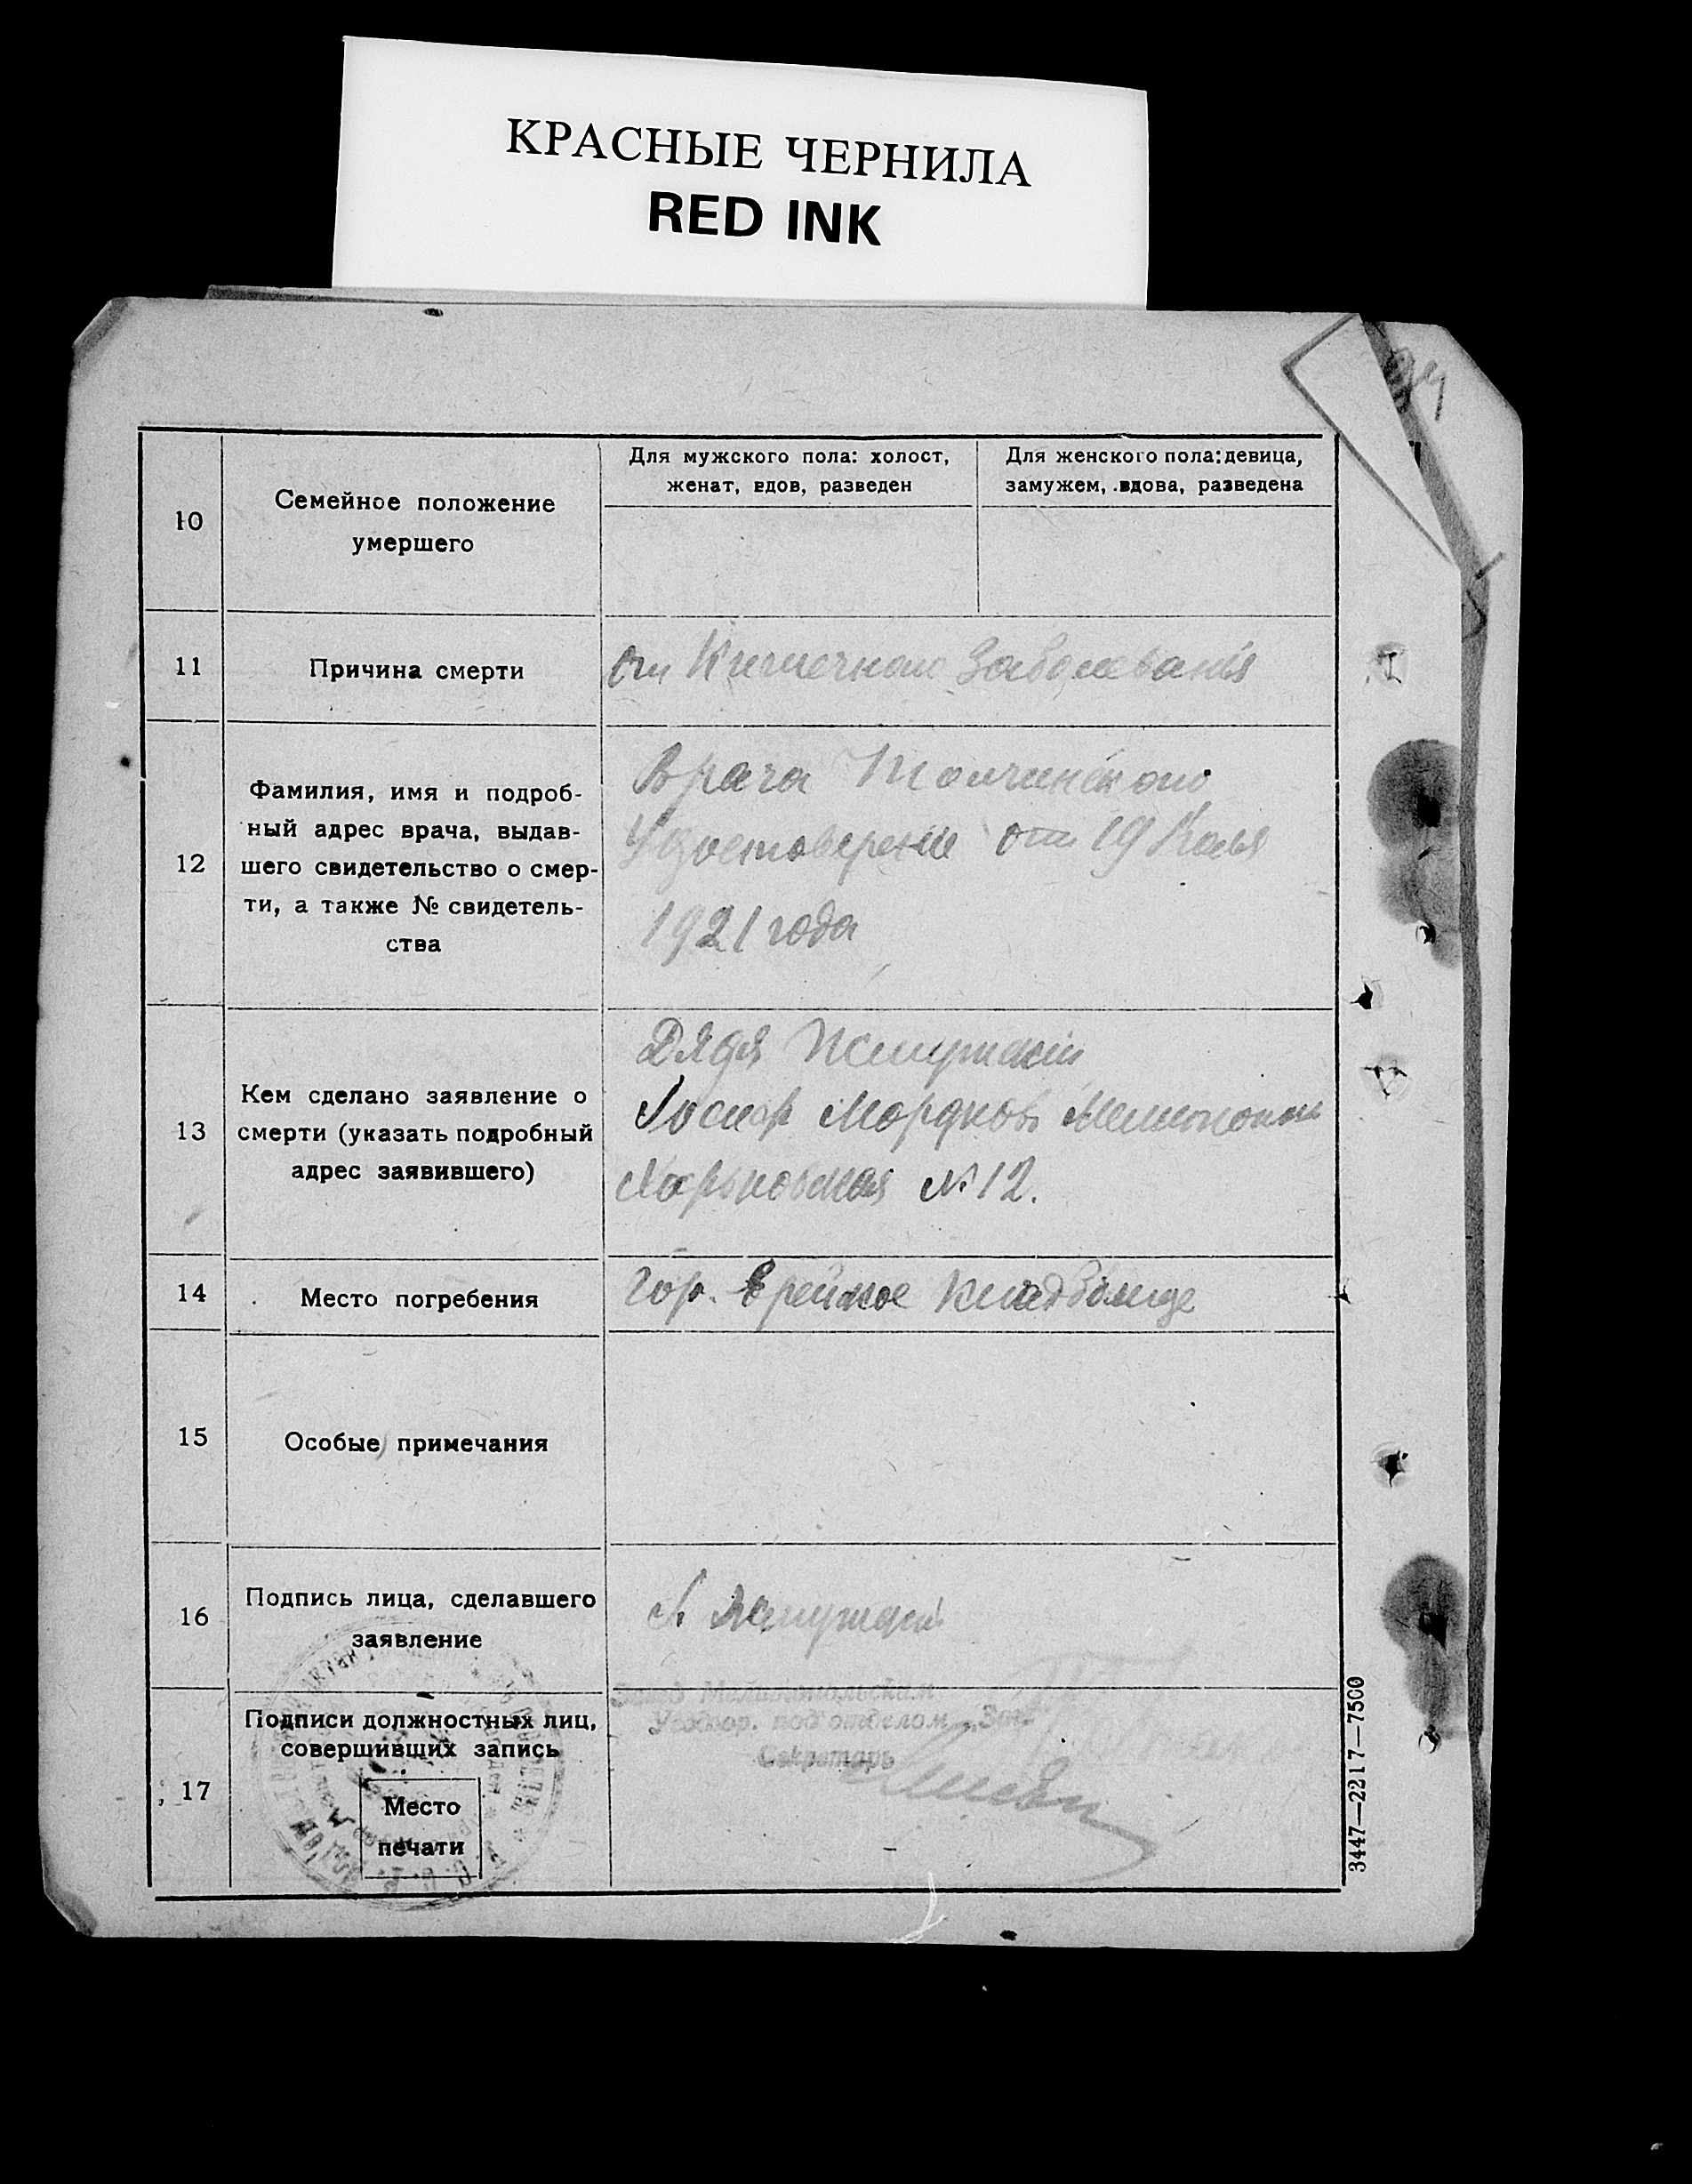 КРАСНЫЕ ЧЕРНИЛА
RED INK
10
Семейное положение
умершего
Для мужского пола: холост,
женат, вдов, разведен
Для женского пола: девица,
замужем, вдова, разведена
11
Причина смерти
От Кишечнаго Заболеванія
12
Фамилия, имя и подроб-
ный адрес врача, выдав-
шего свидетельство о смер-
ти, а также № свидетель-
ства
Врача
от 19
1921 года
13
Кем сделано заявление о
смерти (указать подробный
адрес заявившего)
Дядя
Іосиф Мордков
Харьковская № 12.
14
Место погребения
Гор. Еврейское Кладбище
15
Особые примечания
16
Подпись лица, сделавшего
заявление
17
Подписи должностных лиц,
совершивших запись
Место
печати
Завед Мелитопольским
под'отделом
Секретарь
3447—2217—7500